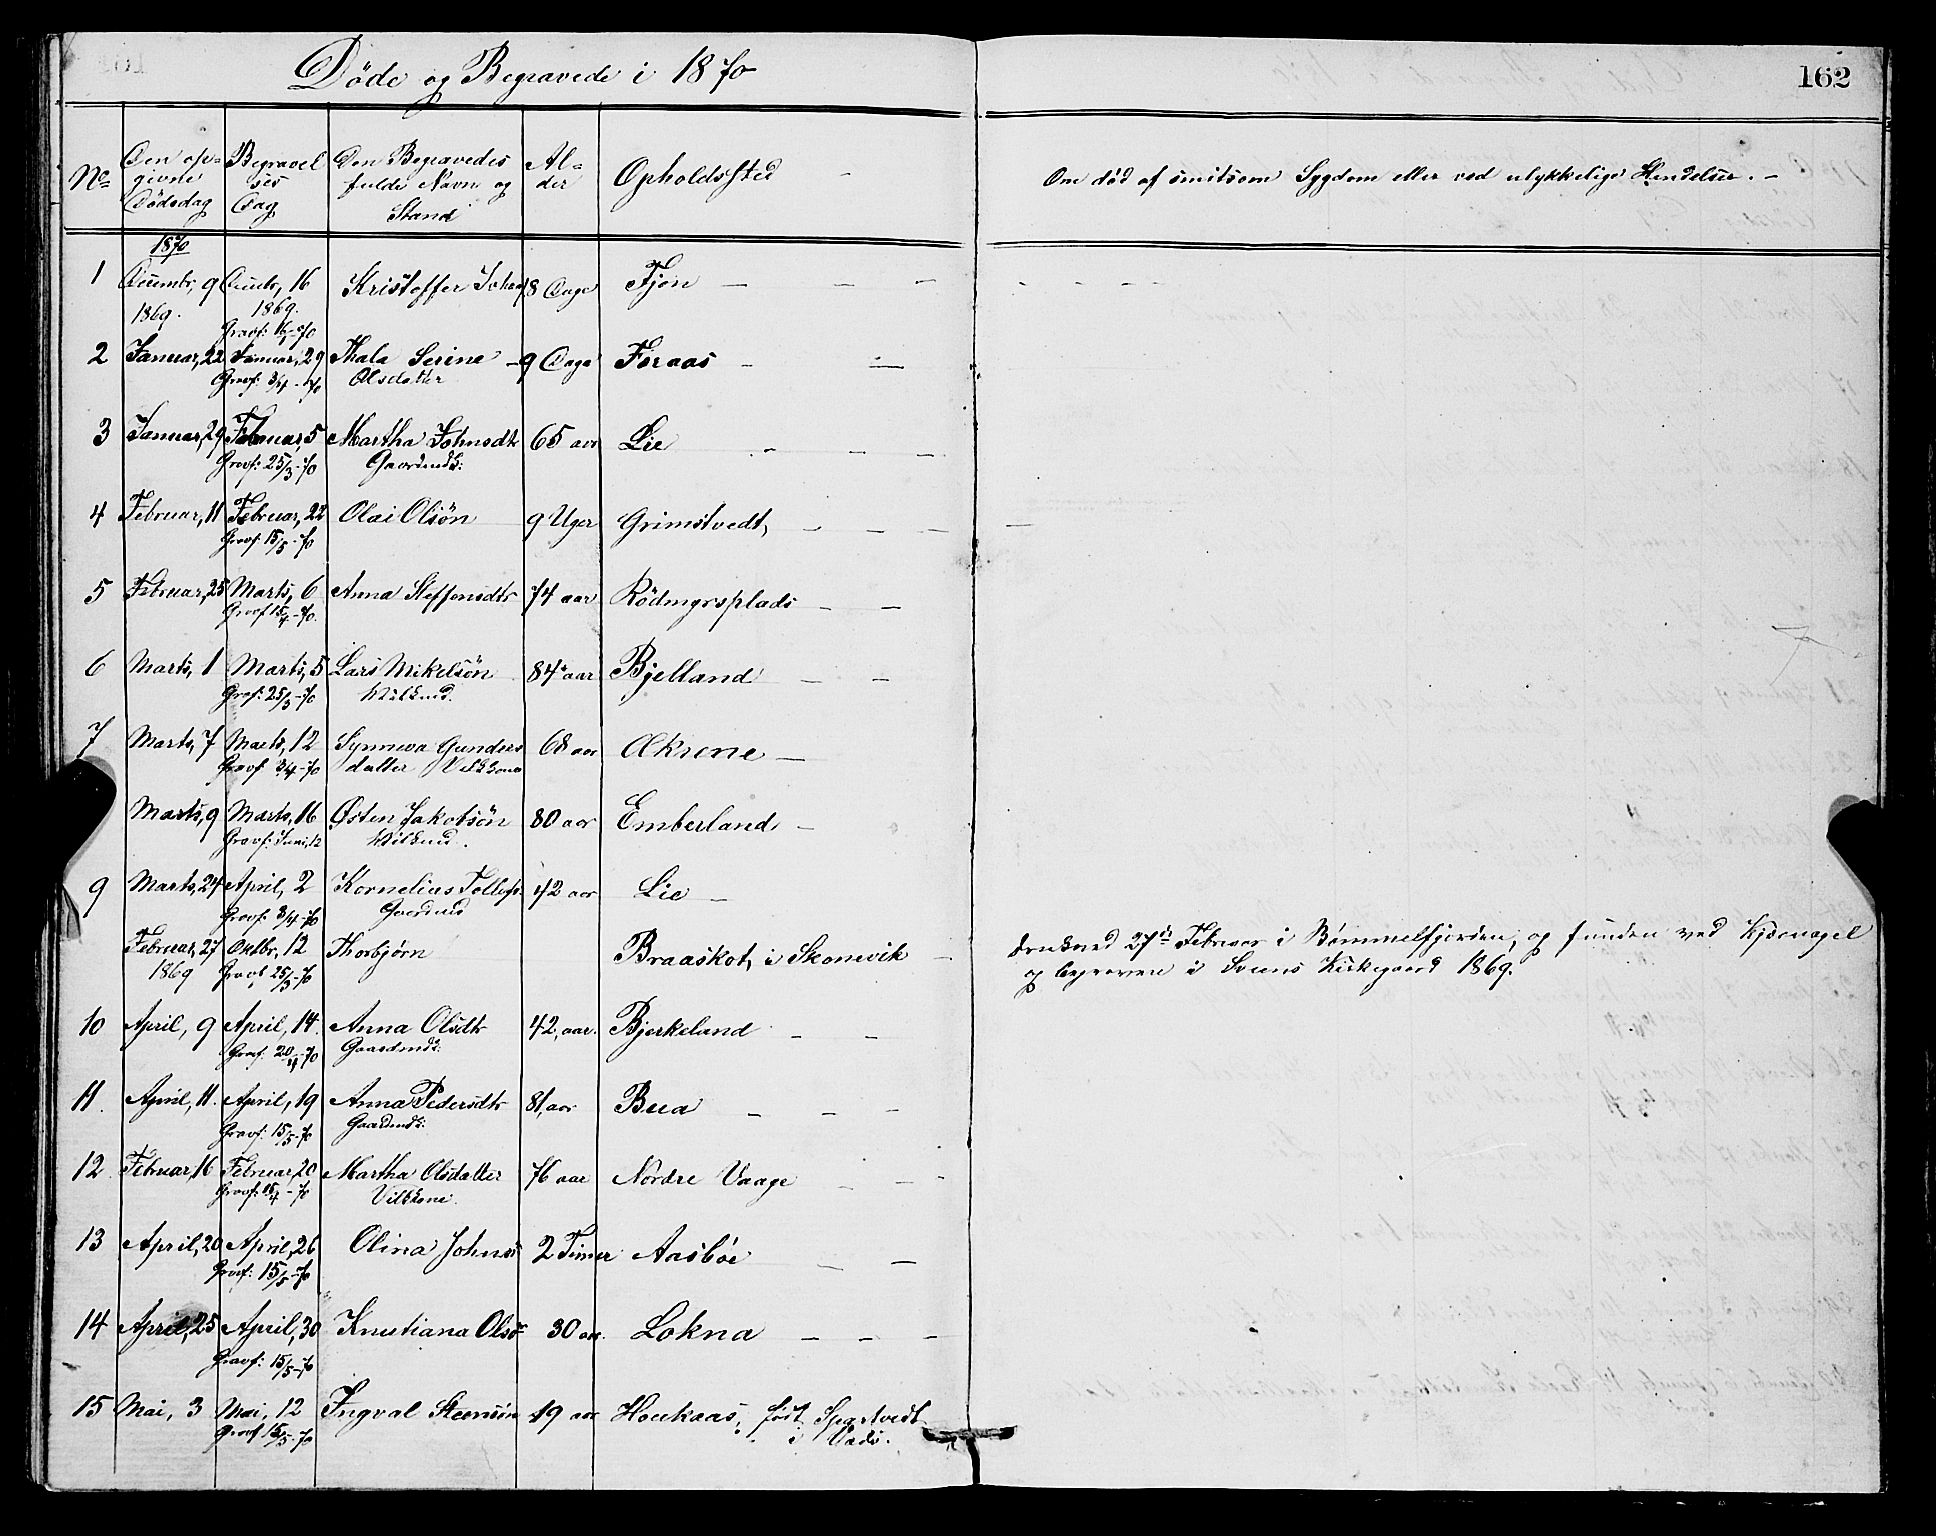 Döde og Begravede i 1870
162
No
Den op-
givne
Dödsdag
Begravel
ses
Dag
Den Begravedes
fulde Navn og
Stand
Al-
der
Opholdssted
Om död af smitsom Sygdom eller ved ulykkelige Hendelser.
1870
1 Decembr, 9 Decmbr, 16 Kristoffer 8 Dage Fjon
1869. 1869.
Gravf: 16/1-70
2 Januar, 22 Januar, 29 Thala Serine 9 Dage Foraas
Gravf: 3/4-70 Olsdatter
3 Januar, 29 Februar, 5 Martha Johnsdtr 65 aar Lie
Gravf: 25/3-70 Gaardmdk:
4 Februar, 11 Februar, 22 Olai Olsön 9 Uger Grimstvedt,
Gravf: 15/5-70
5 Februar, 25 Marts, 6 Anna Steffensdtr 74 aar Rödmyrsplads
Gravf 15/4-70.
6 Marts, 1 Marts, 5 Lars Mikelsön 84 aar Bjelland
Gravf: 25/3-70 Vilkmd.
7 Marts, 7 Marts, 12 Synneva Gunders 68 aar Økrene
Gravf 3/4-70 datter Vilkkone
Marts, 9 Marts, 16 Østen Jakobsön 80 aar Emberland
Gravf: Juni, 12 Vilkmd.
9 Marts, 24 April, 2 Kornelius Tollefs. 42 aar Lie
Gravf: 3/4-70 Gaardmd
Februar, 27 Oktbr, 12 Thorbjørn Braaskot, i Skonevik
1869 Gravf 25/3-70
druknad 27de Februar i Bømmelfjorden, og funden ved
og begraven i Sveens Kirkegaard 1869.
10 April, 9 April, 14. Anna Olsdtr 42, aar. Bjerkeland
Gravf: 20/4-70 Gaardmdk:
11. April, 11. April, 19 Anna Pedersdtr 81, aar Bua
Gravf: 15/5-70 Gaardmdk:
12 Februar, 16 Februar, 20 Martha Olsdatter 76 aar Nordre Vaage
Gravf: 15/4-70 Vilkkone.
13 April, 20 April, 26 Olina Johns 2 Timer Aasböe
Gravf: 15/5-70
14 April, 25 April, 30 Knutiana Ols 30 aar. Lokna
Gravf: 15/5-70
15 Mai, 3 Mai, 12 Ingval Steensön 19 aar Houkaas, født
Gravf 15/5-70 i